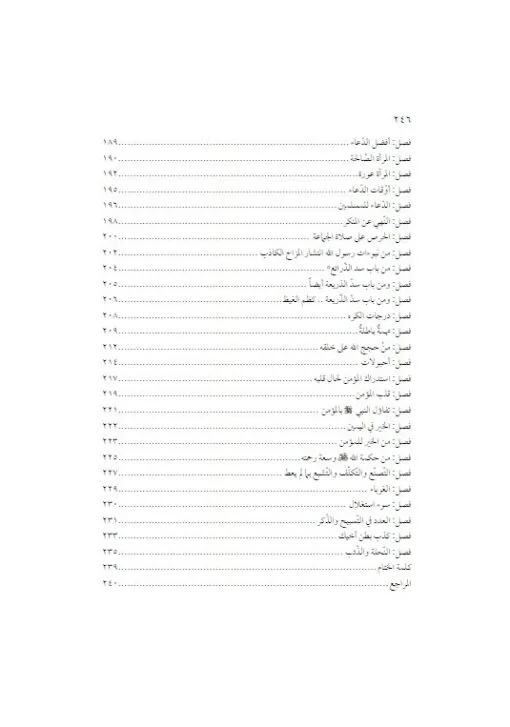 ٢٤٦
فصل: أفضل الدّعاء ... ١٨٩
فصل: المرأة الصّالحة ... ١٩٠
فصل: المرأة عورة ... ١٩٢
فصل: أوقات الدّعاء ... ١٩٥
فصل: الدّعاء للمسلمين ... ١٩٦
فصل: النّهي عن المنكر ... ١٩٨
فصل: الحرص على صلاة الجماعة ... ٢٠٠
فصل: من نبوءات رسول الله انتشار المزاح الكاذب ... ٢٠٢
فصل: من باب سد الذّرائع ... ٢٠٤
فصل: ومن باب سدّ الذريعة أيضاً ... ٢٠٥
فصل: ومن باب سدّ الذّريعة .. كظم الغيظ ... ٢٠٦
فصل: درجات الكره ... ٢٠٨
فصل: تهمةٌ باطلةٌ ... ٢٠٩
فصل: منْ حججِ الله على خلقه ... ٢١٢
فصل: أحبولات ... ٢١٤
فصل: استدراك المؤمن لحال قلبه ... ٢١٧
فصل: قلب المؤمن ... ٢١٩
فصل: تفاؤل النبي ﷺ بالمؤمن ... ٢٢١
فصل: الخير في اليمين ... ٢٢٢
فصل: من الخير للمؤمن ... ٢٢٣
فصل: من حكمة الله ﷻ وسعة رحمته ... ٢٢٥
فصل: التّصنّع والتّكلّف والتّشبع بما لم يعط ... ٢٢٧
فصل: الغرباء ... ٢٢٩
فصل: سوء استغلال ... ٢٣٠
فصل: العدد في التّسبيح والذّكر ... ٢٣١
فصل: كذب بطن أخيك ... ٢٣٣
فصل: النّحلة والذّئب ... ٢٣٥
كلمة الختام ... ٢٣٩
المراجع ... ٢٤٠